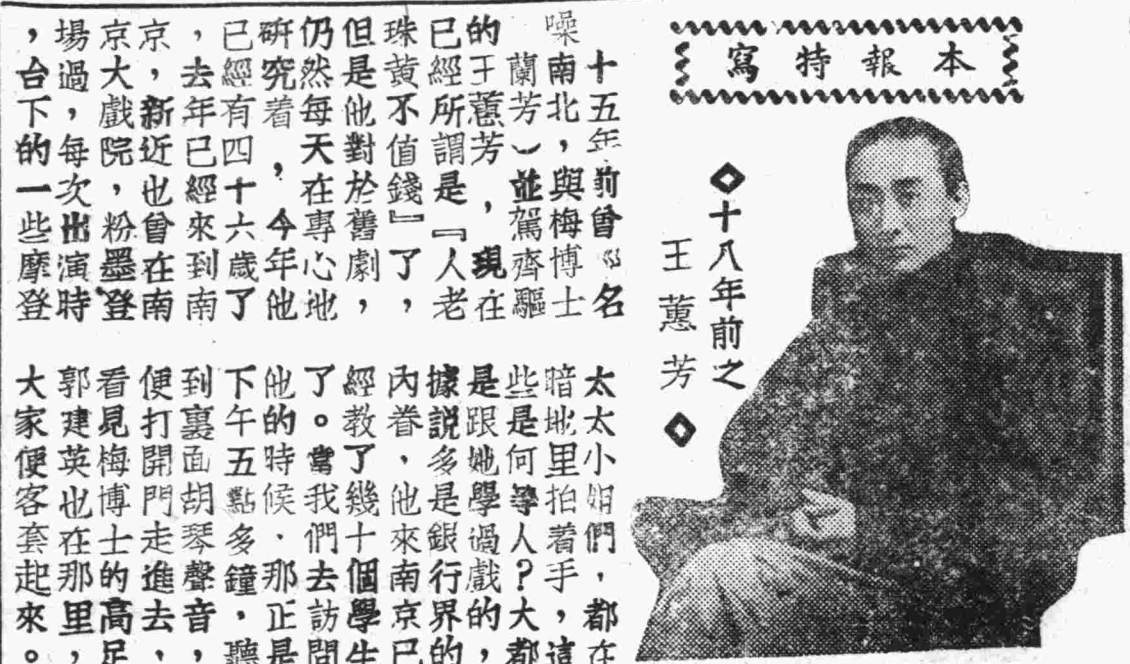 本報特寫
◇十八年前之
王蕙芳◇
十五年前曾名
噪南北，與梅博士
蘭芳）並駕齊驅
的王蕙芳，現在
已經所謂是『人老
珠黃不值錢』了，
但是他對於舊劇，
仍然每天在專心地
研究着，今年他
已經有四十六歲了
，去年已經來到南
京，新近也曾在南
京大戲院，粉墨登
場過，每次出演時
，台下的一些摩登
太太小姐們，都在
暗地里拍着手，這
些是何等人？大都
是跟她學過戲的，
據說多是銀行界的
內眷，他來南京已
經教了幾十個學生
了。當我們去訪問
他的時候，那正是
下午五點多鐘，聽
到裏面胡琴聲音，
便打開門走進去，
看見梅博士的高足
郭建英也在那里，
大家便客套起來。